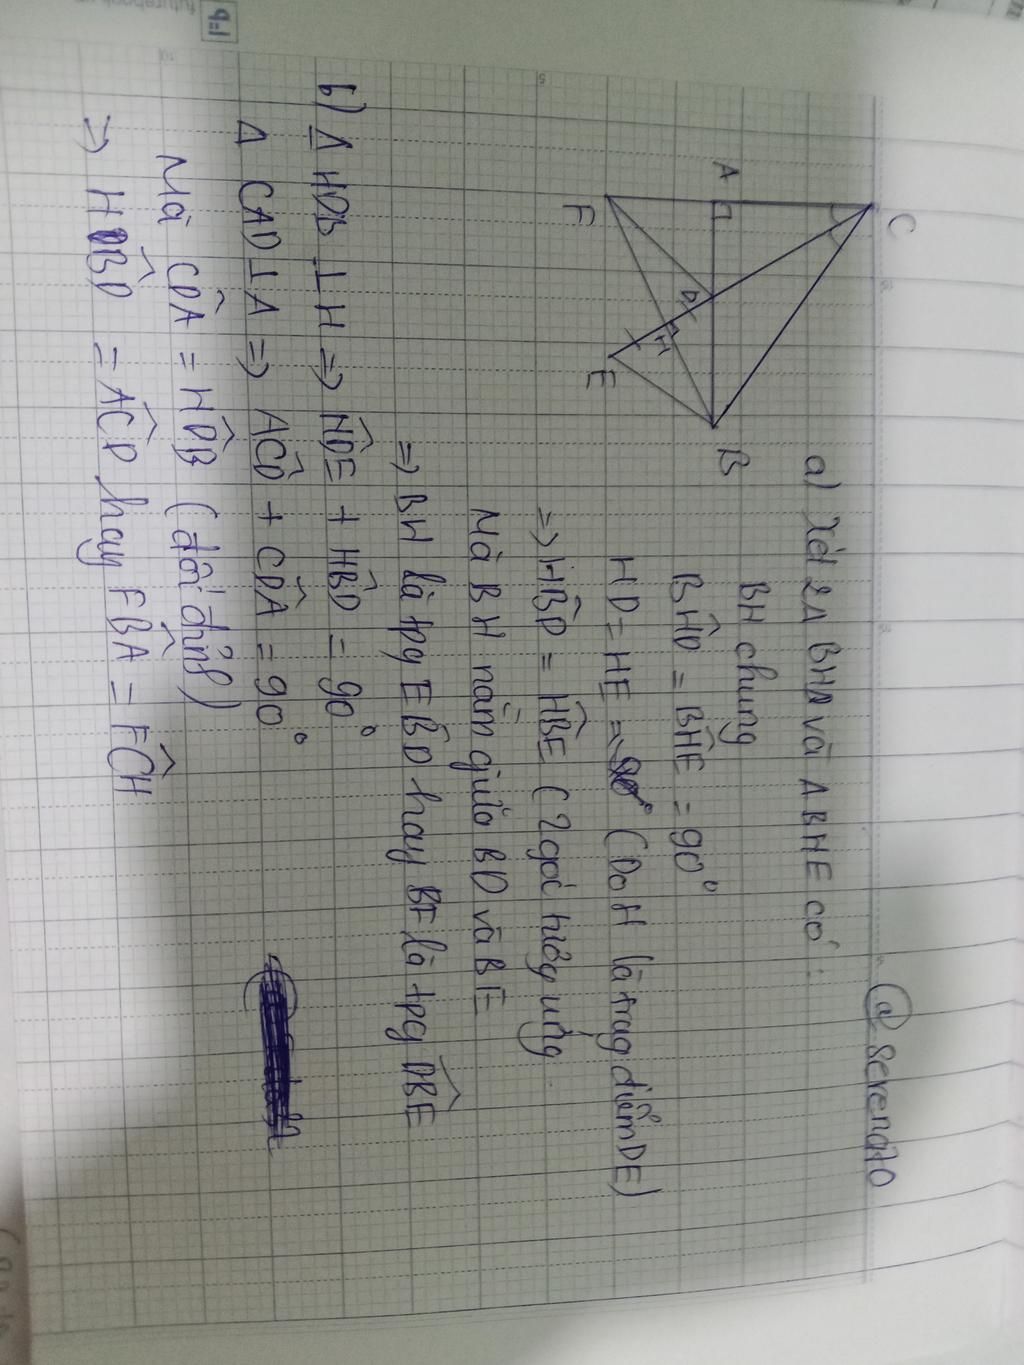 @serenato
a) Xét 2Δ BHD và ΔBHE có:
BH chung
BĤD = BĤE = 90°
HD = HE = 90° (Do H là trag điểm DE)
=> HB̂D = HB̂E (2 góc tướg ứng
Mà BH nằm giữa BD và BE
=> BH là tpg EB̂D hay BF là tpg DB̂E
C
A
B
D
H
F
E
b) Δ HDB ⊥ H => HD̂E + HB̂D = 90°
Δ CAD ⊥ A => AĈD + CD̂A = 90°
Mà CD̂A = HD̂B (đối đỉnh)
=> HB̂D = AĈD hay FB̂A = FĈH